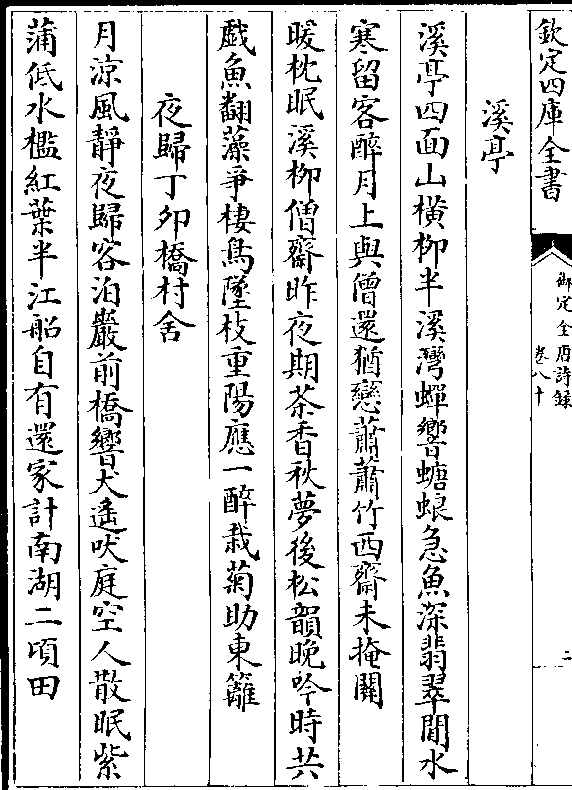 欽定四庫全書
御定全唐詩録
卷八十
二
溪亭
溪亭四面山横柳半溪灣蟬響螗蜋急魚深翡翠閒水
寒留客醉月上與僧還猶戀蕭蕭竹西齋未掩關
暖枕眠溪柳僧齋昨夜期茶香秋夢後松韻晚吟時共
戲魚翻藻爭棲鳥墜枝重陽應一醉栽菊助東籬
夜歸丁卯橋村舍
月涼風靜夜歸客泊巖前橋響犬遙吠庭空人散眠紫
蒲低水檻紅葉半江船自有還家計南湖二頃田